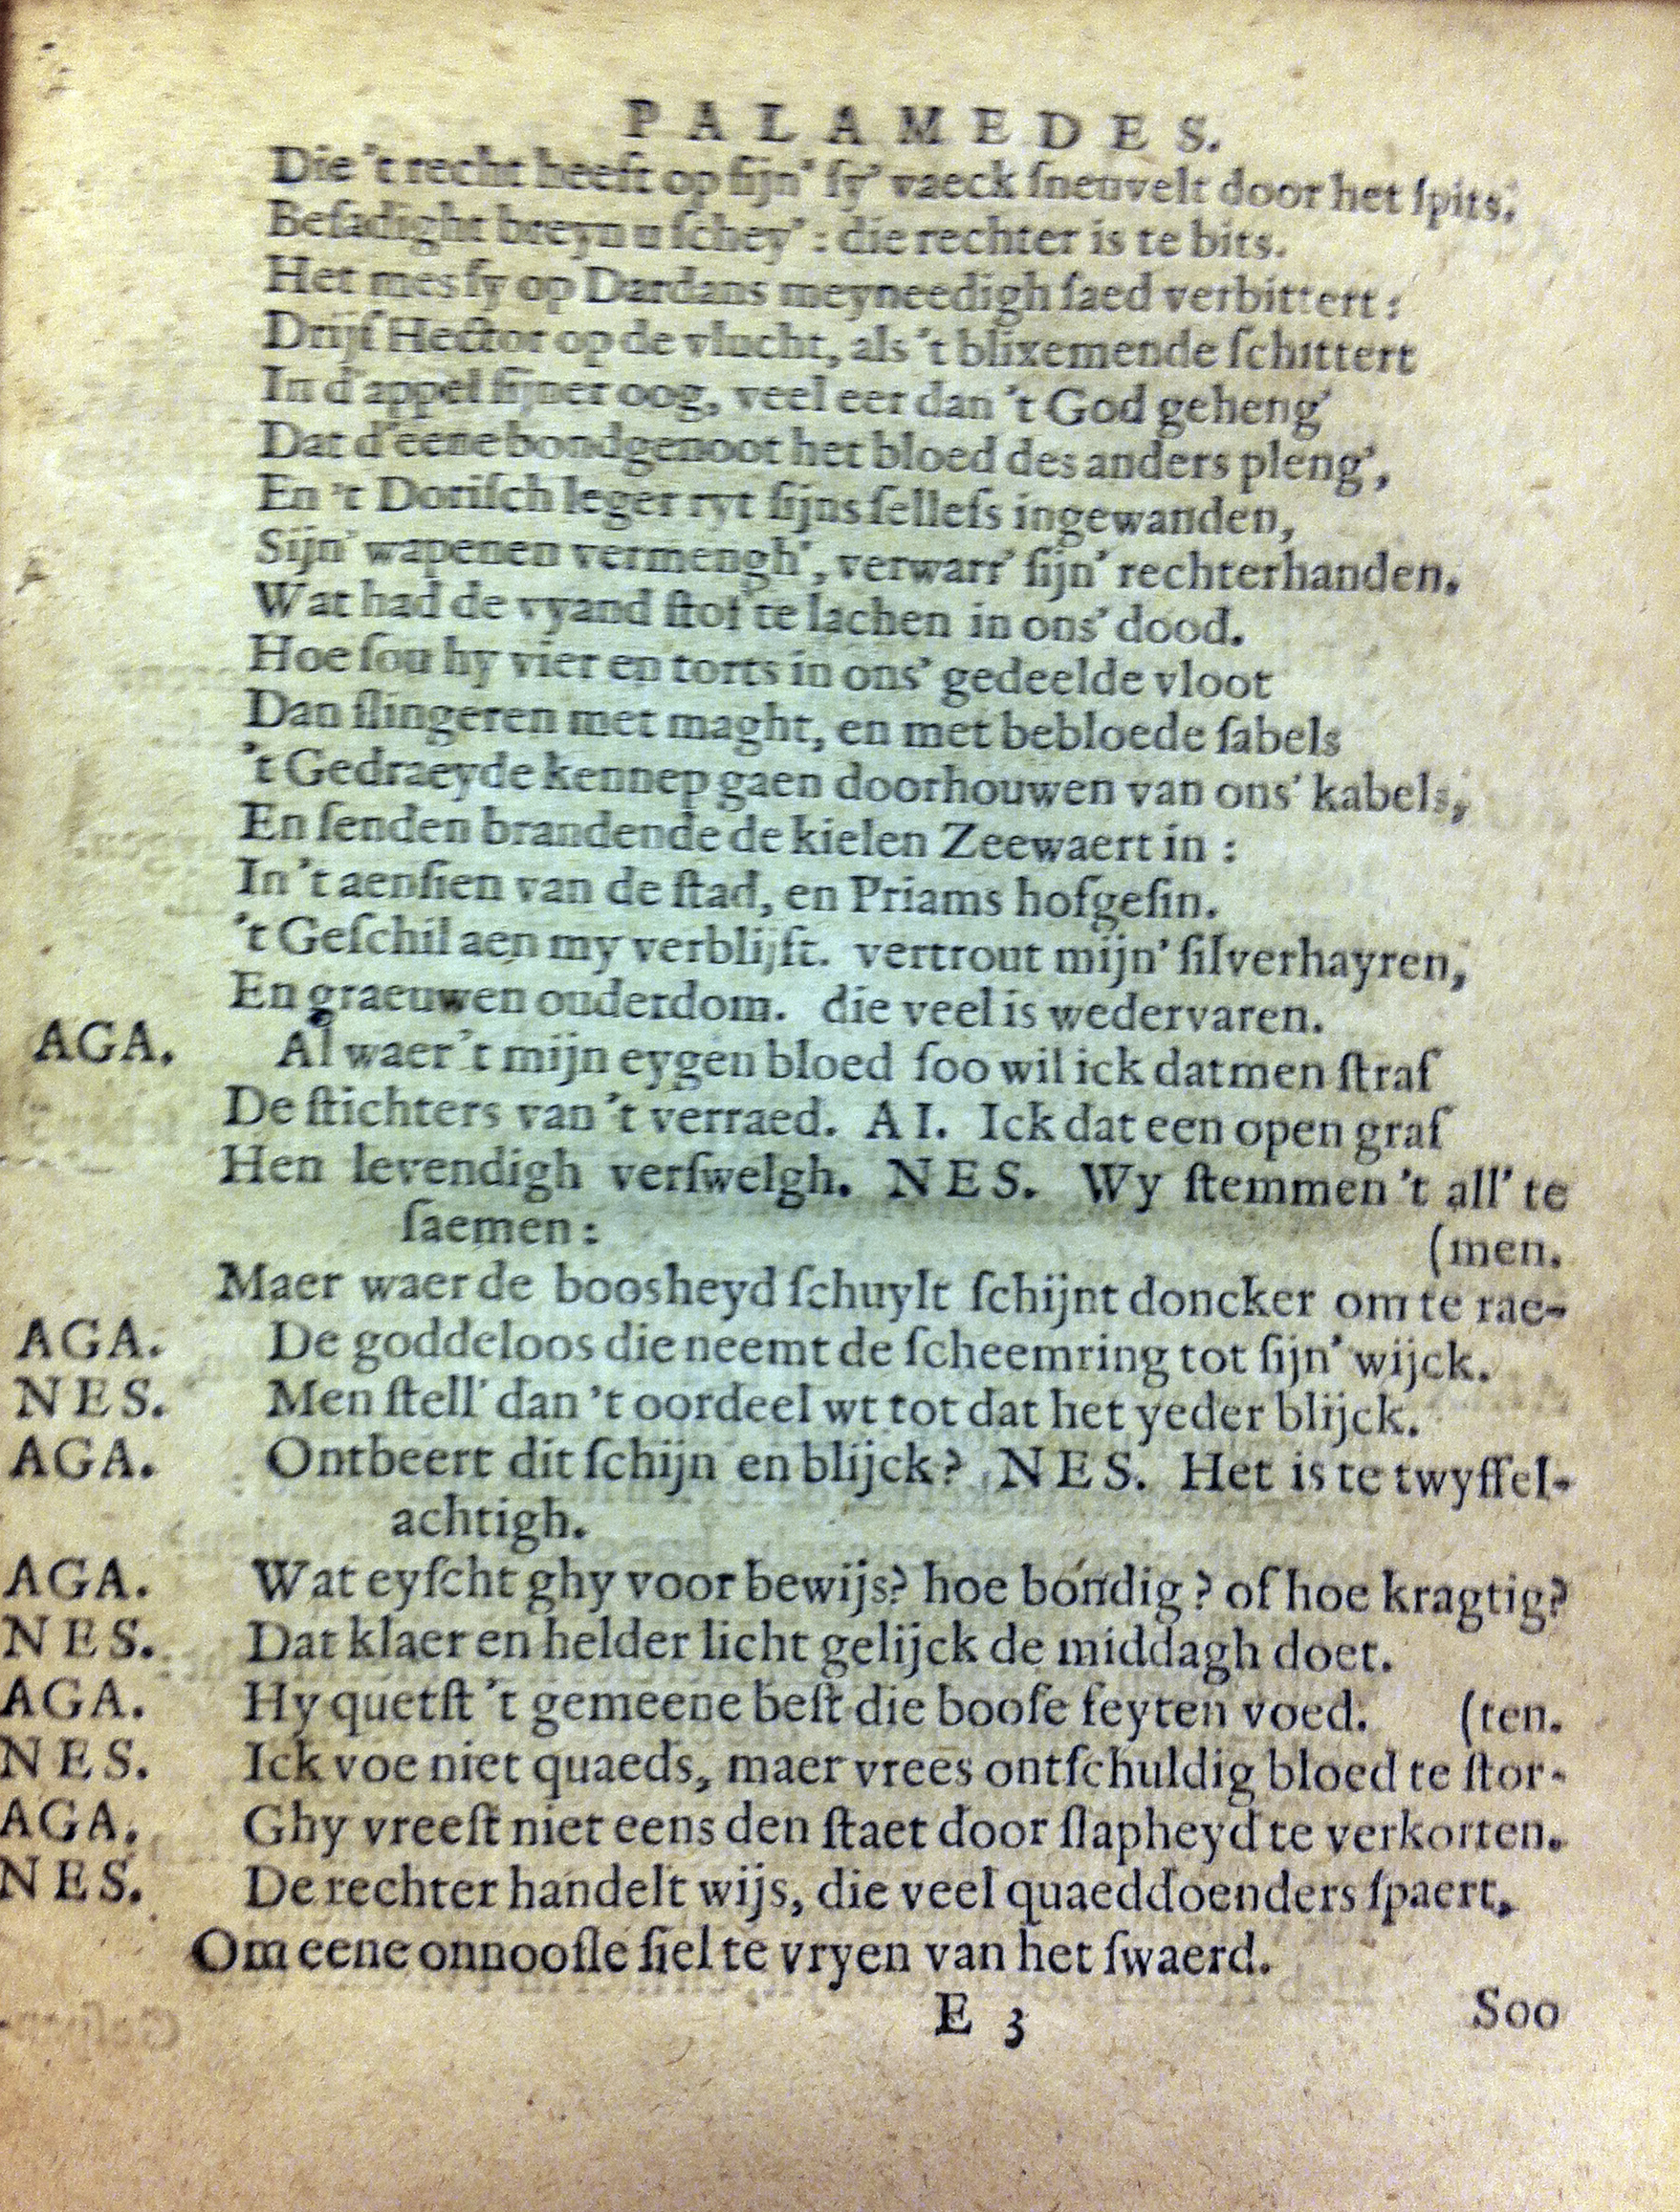 PALAMEDES.
Die 't recht heeft op ſijn' ſy' vaeck ſneuvelt door het ſpits.
Beſadight breyn u ſchey' : die rechter is te bits.
Het mes ſy op Dardans meyneedigh ſaed verbittert :
Drijf Hector op de vlucht, als 't blixemende ſchittert
In d'appel ſijner oog, veel eer dan 't God geheng'
Dat d'eene bondgenoot het bloed des anders pleng',
En 't Doriſch leger ryt ſijns ſelleſs ingewanden,
Sijn' wapenen vermengh', verwarr' ſijn' rechterhanden.
Wat had de vyand ſtof te lachen in ons' dood.
Hoe ſou hy vier en torts in ons' gedeelde vloot
Dan ſlingeren met maght, en met bebloede ſabels
't Gedraeyde kennep gaen doorhouwen van ons' kabels,
En ſenden brandende de kielen Zeewaert in :
In 't aenſien van de ſtad, en Priams hofgeſin.
't Geſchil aen my verblijft. vertrout mijn' ſilverhayren,
En graeuwen ouderdom. die veel is wedervaren.
AGA. Al waer't mijn eygen bloed ſoo wil ick datmen ſtraf
De ſtichters van 't verraed. AI. Ick dat een open graf
Hen levendigh verſwelgh. NES. Wy ſtemmen 't all' te
ſaemen :
(men.
Maer waer de boosheyd ſchuylt ſchijnt doncker om te rae-
AGA. De goddeloos die neemt de ſcheemring tot ſijn' wijck.
NES. Men ſtell' dan 't oordeel wt tot dat het yeder blijck.
AGA. Ontbeert dit ſchijn en blijck? NES. Het is te twyffel-
achtigh.
AGA. Wat eyſcht ghy voor bewijs? hoe bondig? of hoe kragtig?
NES. Dat klaer en helder licht gelijck de middagh doet.
AGA. Hy quetſt 't gemeene beſt die booſe feyten voed. (ten.
NES. Ick voe niet quaeds, maer vrees ontſchuldig bloed te ſtor-
AGA. Ghy vreeſt niet eens den ſtaet door ſlapheyd te verkorten.
NES. De rechter handelt wijs, die veel quaeddoenders ſpaert,
Om eene onnooſle ſiel te vryen van het ſwaerd.
E 3 Soo